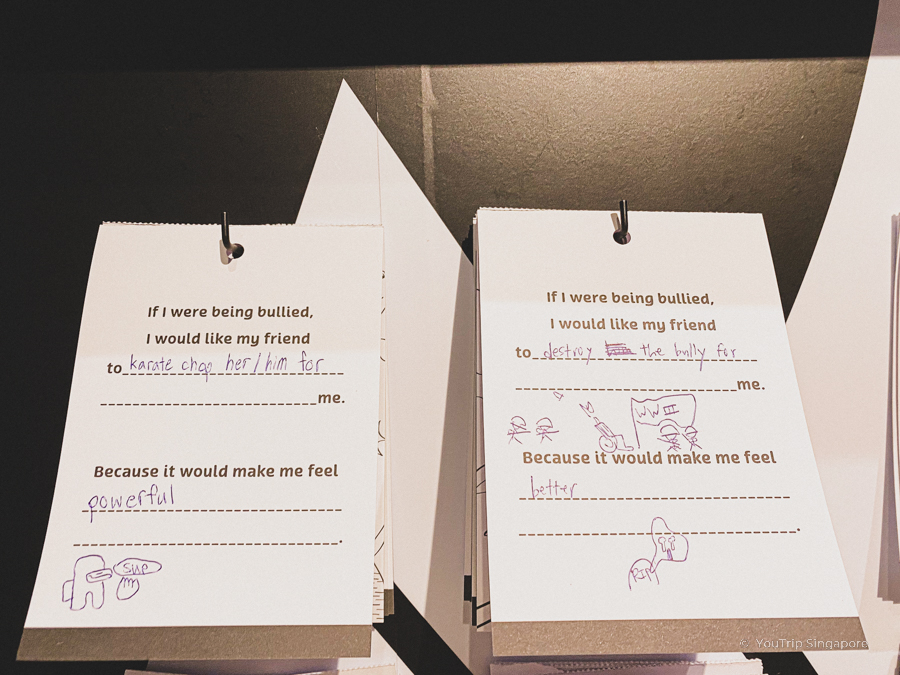 If I were being bullied,
I would like my friend
to karate chop her/him for
me.
Because it would make me feel
powerful
.
sup
If I were being bullied,
I would like my friend
to destroy the bully for
me.
WW II
Because it would make me feel
better
.
RIP
© YouTrip Singapore